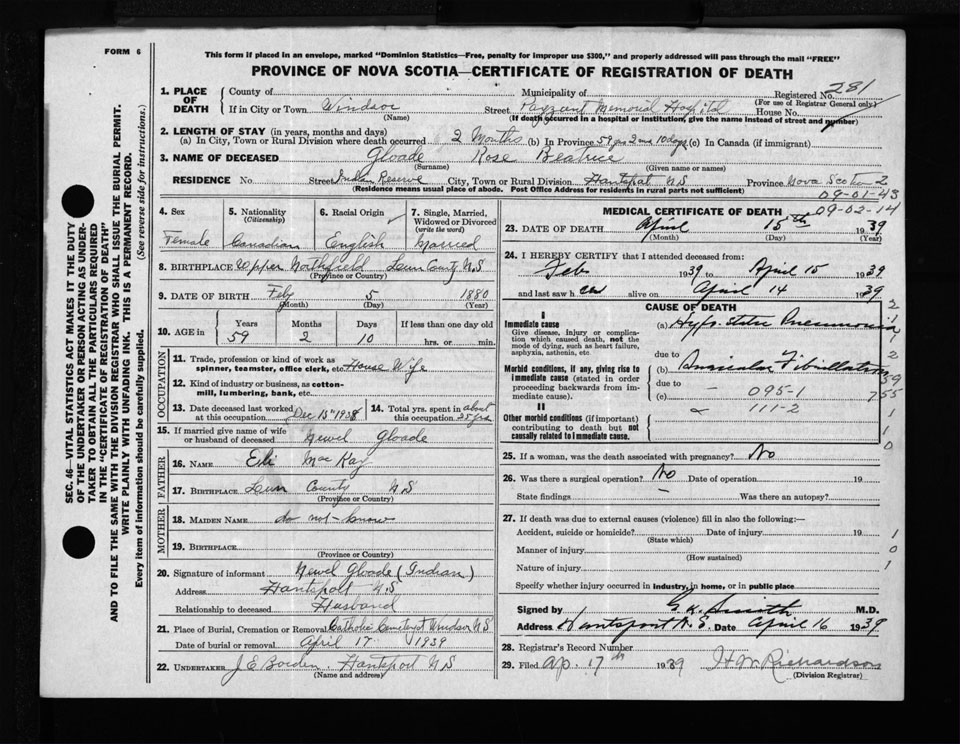 FORM 6
This form if placed in an envelope, marked "Dominion Statistics—Free, penalty for improper use $300," and properly addressed will pass through the mail "FREE"
PROVINCE OF NOVA SCOTIA—CERTIFICATE OF REGISTRATION OF DEATH
SEC. 46—VITAL STATISTICS ACT MAKES IT THE DUTY
OF THE UNDERTAKER OR PERSON ACTING AS UNDER-
TAKER TO OBTAIN ALL THE PARTICULARS REQUIRED
IN THE "CERTIFICATE OF REGISTRATION OF DEATH"
AND TO FILE THE SAME WITH THE DIVISION REGISTRAR WHO SHALL ISSUE THE BURIAL PERMIT.
WRITE PLAINLY WITH UNFADING INK. THIS IS A PERMANENT RECORD.
Every item of information should be carefully supplied. (See reverse side for instructions.)
1. PLACE OF DEATH County of Municipality of Registered No. 281
(For use of Registrar General only)
If in City or Town Windsor Street Payzant Memorial Hospital House No.
(Name) (If death occurred in a hospital or institution, give the name instead of street and number)
2. LENGTH OF STAY (in years, months and days)
(a) In City, Town or Rural Division where death occurred 2 Months (b) In Province 59 yrs 2 ms 10 days (c) In Canada (if immigrant)
3. NAME OF DECEASED Gloade Rose Beatrice
(Surname) (Given name or names)
RESIDENCE No. Street Indian Reserve City, Town or Rural Division Hantsport N S Province Nova Scotia 2
(Residence means usual place of abode. Post Office Address for residents in rural parts not sufficient)
09-01-43
09-02-14
4. Sex Female
5. Nationality (Citizenship) Canadian
6. Racial Origin English
7. Single, Married, Widowed or Divorced (write the word) Married
8. BIRTHPLACE Upper Northfield Lun County N S
(Province or Country)
9. DATE OF BIRTH Feby 5 1880
(Month) (Day) (Year)
10. AGE in Years Months Days If less than one day old
59 2 10 hrs. or min.
OCCUPATION
11. Trade, profession or kind of work as spinner, teamster, office clerk, etc. House Wife
12. Kind of industry or business, as cotton-mill, lumbering, bank, etc.
13. Date deceased last worked at this occupation Dec 15th 1938
14. Total yrs. spent in this occupation about 25 yrs
15. If married give name of wife or husband of deceased Newel Gloade
FATHER
16. NAME Eli MacKay
17. BIRTHPLACE Lun County N S
(Province or Country)
MOTHER
18. MAIDEN NAME do not know
19. BIRTHPLACE
(Province or Country)
20. Signature of informant Newel Gloade (Indian)
Address Hantsport N S
Relationship to deceased Husband
21. Place of Burial, Cremation or Removal Catholic Cemetery Windsor N S
Date of burial or removal April 17 1939
22. UNDERTAKER J E Borden Hantsport N S
(Name and address)
MEDICAL CERTIFICATE OF DEATH
23. DATE OF DEATH April 15th 1939
(Month) (Day) (Year)
24. I HEREBY CERTIFY that I attended deceased from:
Feb 1939 to April 15 1939
and last saw h er alive on April 14 1939
CAUSE OF DEATH
I
Immediate cause
Give disease, injury, or complication which caused death, not the mode of dying, such as heart failure, asphyxia, asthenia, etc.
(a) Hypostatic Pneumonia
due to
Morbid conditions, if any, giving rise to immediate cause (stated in order proceeding backwards from immediate cause).
(b) Auricular Fibrillation
due to
(c) — 095-1
111-2
II
Other morbid conditions (if important) contributing to death but not causally related to immediate cause.
25. If a woman, was the death associated with pregnancy? No
26. Was there a surgical operation? No Date of operation 19
State findings — Was there an autopsy?
27. If death was due to external causes (violence) fill in also the following:—
Accident, suicide or homicide? Date of injury 19
(State which)
Manner of injury
(How sustained)
Nature of injury
Specify whether injury occurred in industry, in home, or in public place
Signed by G. K. Smith M.D.
Address Hantsport N. S. Date April 16 1939
28. Registrar's Record Number
29. Filed Ap. 17th 1939 H W Richardson
(Division Registrar)